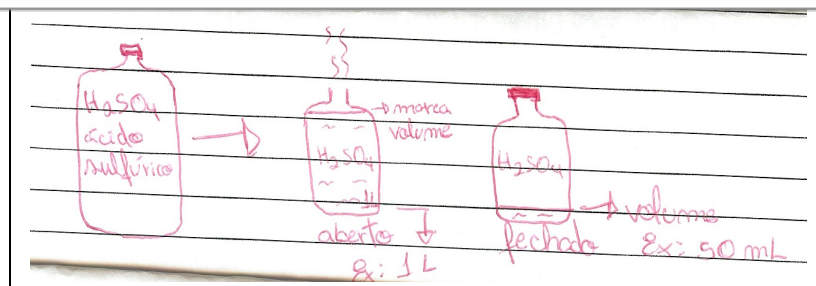 H2SO4
ácido
sulfúrico
→ marca
volume
H2SO4
1L
aberto
Ex: 1L
H2SO4
fechado
→ volume
Ex: 50 mL